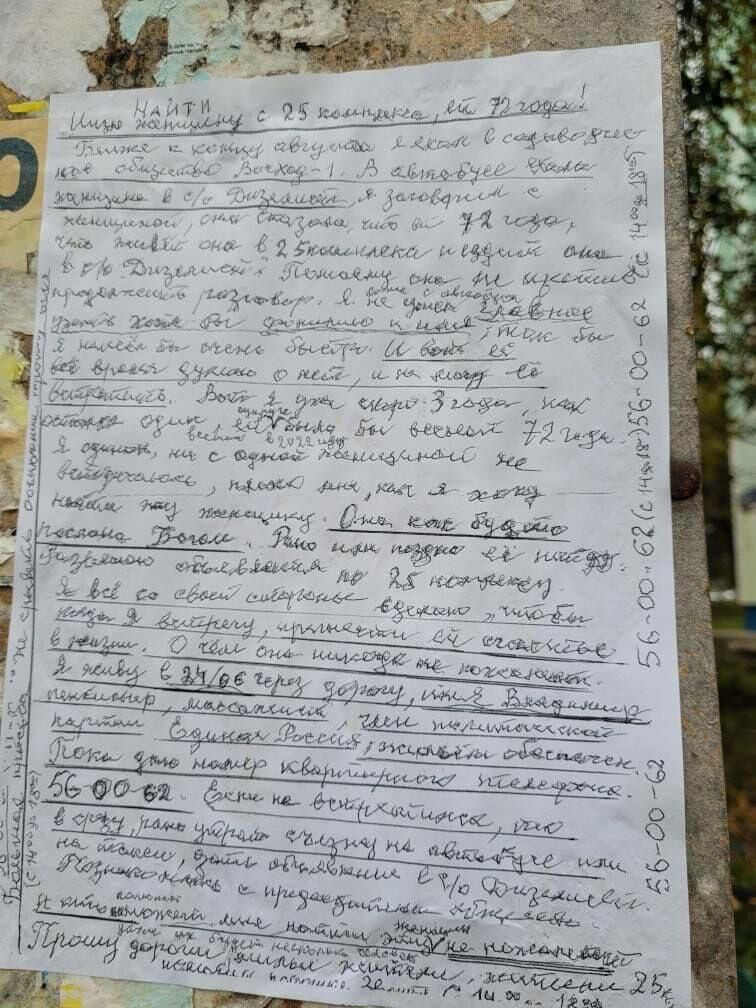 НАЙТИ
Ищу женщину с 25 комплекса, ей 72 года!
Ближе к концу августа я ехал в садоводчес-
кое общество Восход-1. В автобусе ехала
женщина в с/о Дизелист, я заговорил с
женщиной, она сказала, что ей 72 года,
что живёт она в 25 комплексе и ездит она
в с/о Дизелист. По моему она не против
продолжить разговор. Я не
узнать хотя бы фамилию и имя, так бы
я нашёл бы очень быстро. И вот я
всё время думаю о ней, и не могу её
встретить. Вот я уже скоро 3 года, как
остался один, супруге было бы весной 72 года.
весной в 2022 году
Я одинок, ни с одной женщиной не
встречался, плохо мне, как я хочу
найти эту женщину. Она как будто
послана Богом. Рано или поздно её найду.
Развешаю объявления по 25 комплексу.
Я всё со своей стороны сделаю, чтобы
я встречу, принести ей счастье
в жизни. О чём она никогда не пожалеет.
Я живу в 24/06 через дорогу, имя Владимир
пенсионер, массажист, член политической
партии Единая Россия, жильём обеспечен.
Пока даю номер квартирного телефона
56-00-62. Если не встретимся, то
в среду, рано утром съезжу на автобусе или
на такси, дать объявление в с/о Дизелист.
Познакомлюсь с председателем общества.
И кто поможет мне найти эту женщину не пожалеет
даже их будет несколько человек
Прошу дорогие, милые жители, жители 25
56-00-62 (с 14 00 до 18 00) 56-00-62 (с 14 00 до 18 00)
56-00-62
Большая просьба не срывать объявления прошу вас
(с 14 00 до 18 00)